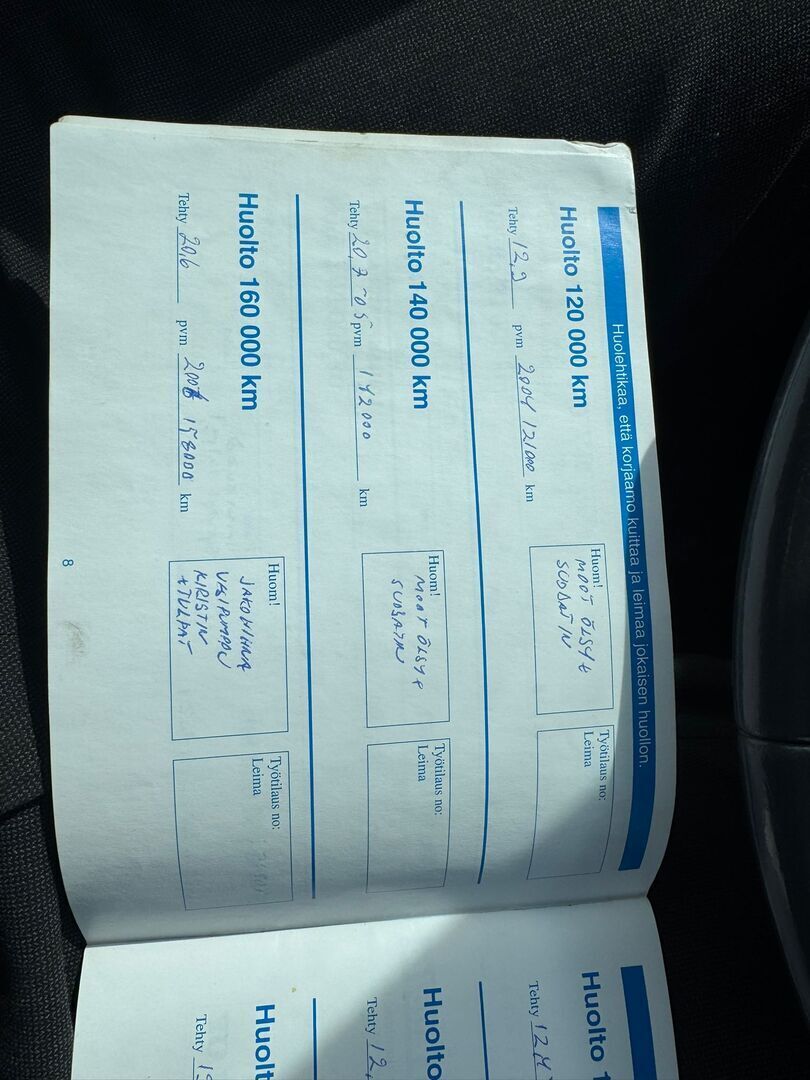 Huolehtikaa, että korjaamo kuittaa ja leimaa jokaisen huollon.
Huolto 120 000 km
Tehty 12,9 pvm 2004 121000 km
Huom!
MOOT ÖLJY +
SUODATIN
Työtilaus no:
Leima
Huolto 140 000 km
Tehty 20,7-05 pvm 142000 km
Huom!
MOOT ÖLJY +
SUODATIN
Työtilaus no:
Leima
Huolto 160 000 km
Tehty 20,6 pvm 2006 158000 km
Huom!
JAKOHIHNA
VESIPUMPPU
KIRISTIN
+TULPAT
Työtilaus no:
Leima
8
Huolto 1
Tehty 12
Huolto
Tehty 12,
Huolt
Tehty